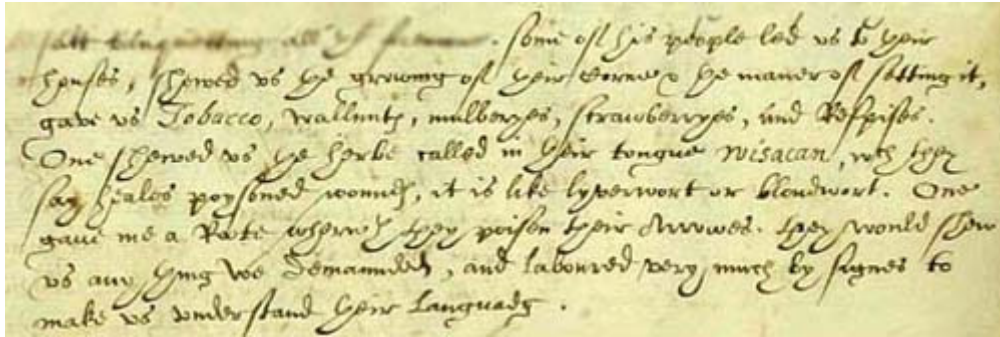 satt banquetting all yͤ . some of his people led us to their
houses, shewed us the growing of their Corne & the maner of setting it,
gave us Tobacco, wallnutes, mulberyes, strawberryes, and Respises.
One shewed us the herbe called in their tongue wisacan, wch they
say heales poysoned woundes, it is like lyverwort or bloudwort. One
gave me a Roote wherwth they poison their Arrowes. they would shew
us any thing we Demaunded, and laboured very much by signes to
make us understand their Languadg.